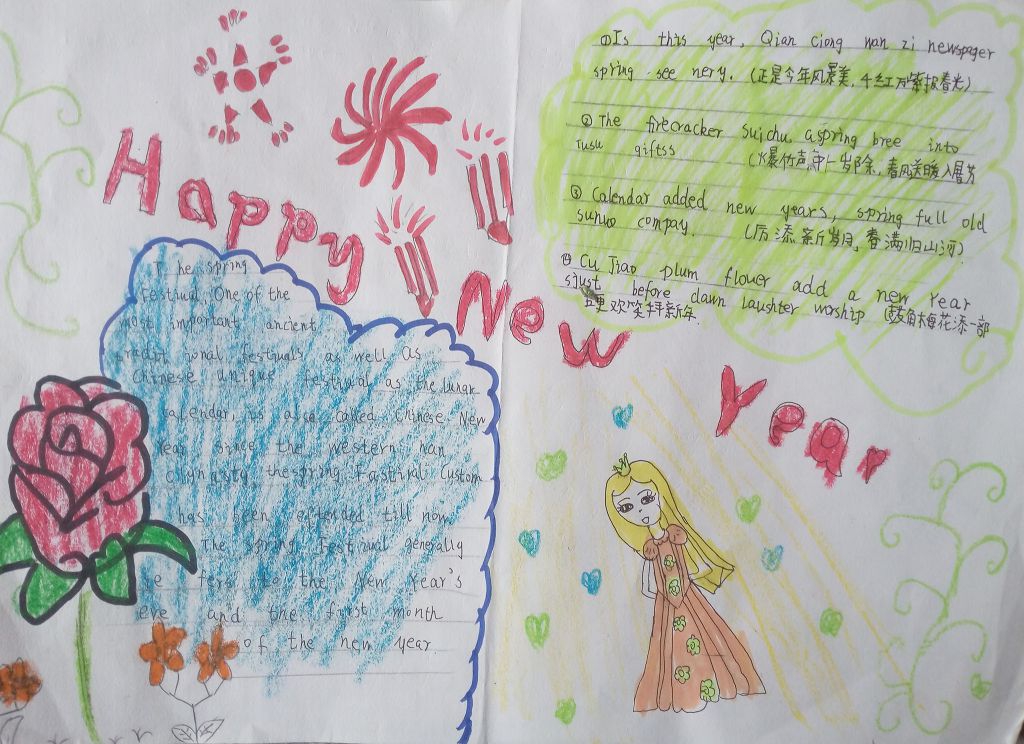 Happy
New
Year
The spring
Festival, One of the
most important ancient
traditional festivals as well as
Chinese unique festival as the lunar
calendar, is also called Chinese New
Year since the western Han
dynasty, the spring Fastival custom
has been offended till now
The spring Festival generally
fers to the New Year's
eve and the first month
of the new year.
①Is this year, Qian ciong wan zi newspager
spring see nery. (正是今年风景美,千红万紫报春光)
②The firecracker suichu, aspring bree into
Tusu giftss (爆竹声中一岁除,春风送暖入屠苏
③Calendar added new years, spring full old
sunwo compay. (历添新岁月,春满旧山河)
④Cu Jiao plum flower add a new Year
sjust before dawn laughter worship (鼓角梅花添一部
五更欢笑拜新年.